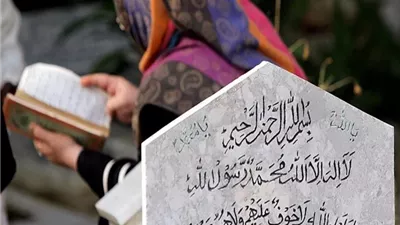 يا الله
بسم الله الرحمن الرحيم
يا محمد
لا اله الا الله محمد رسول الله
الله لا خوف عليهم ولاهم